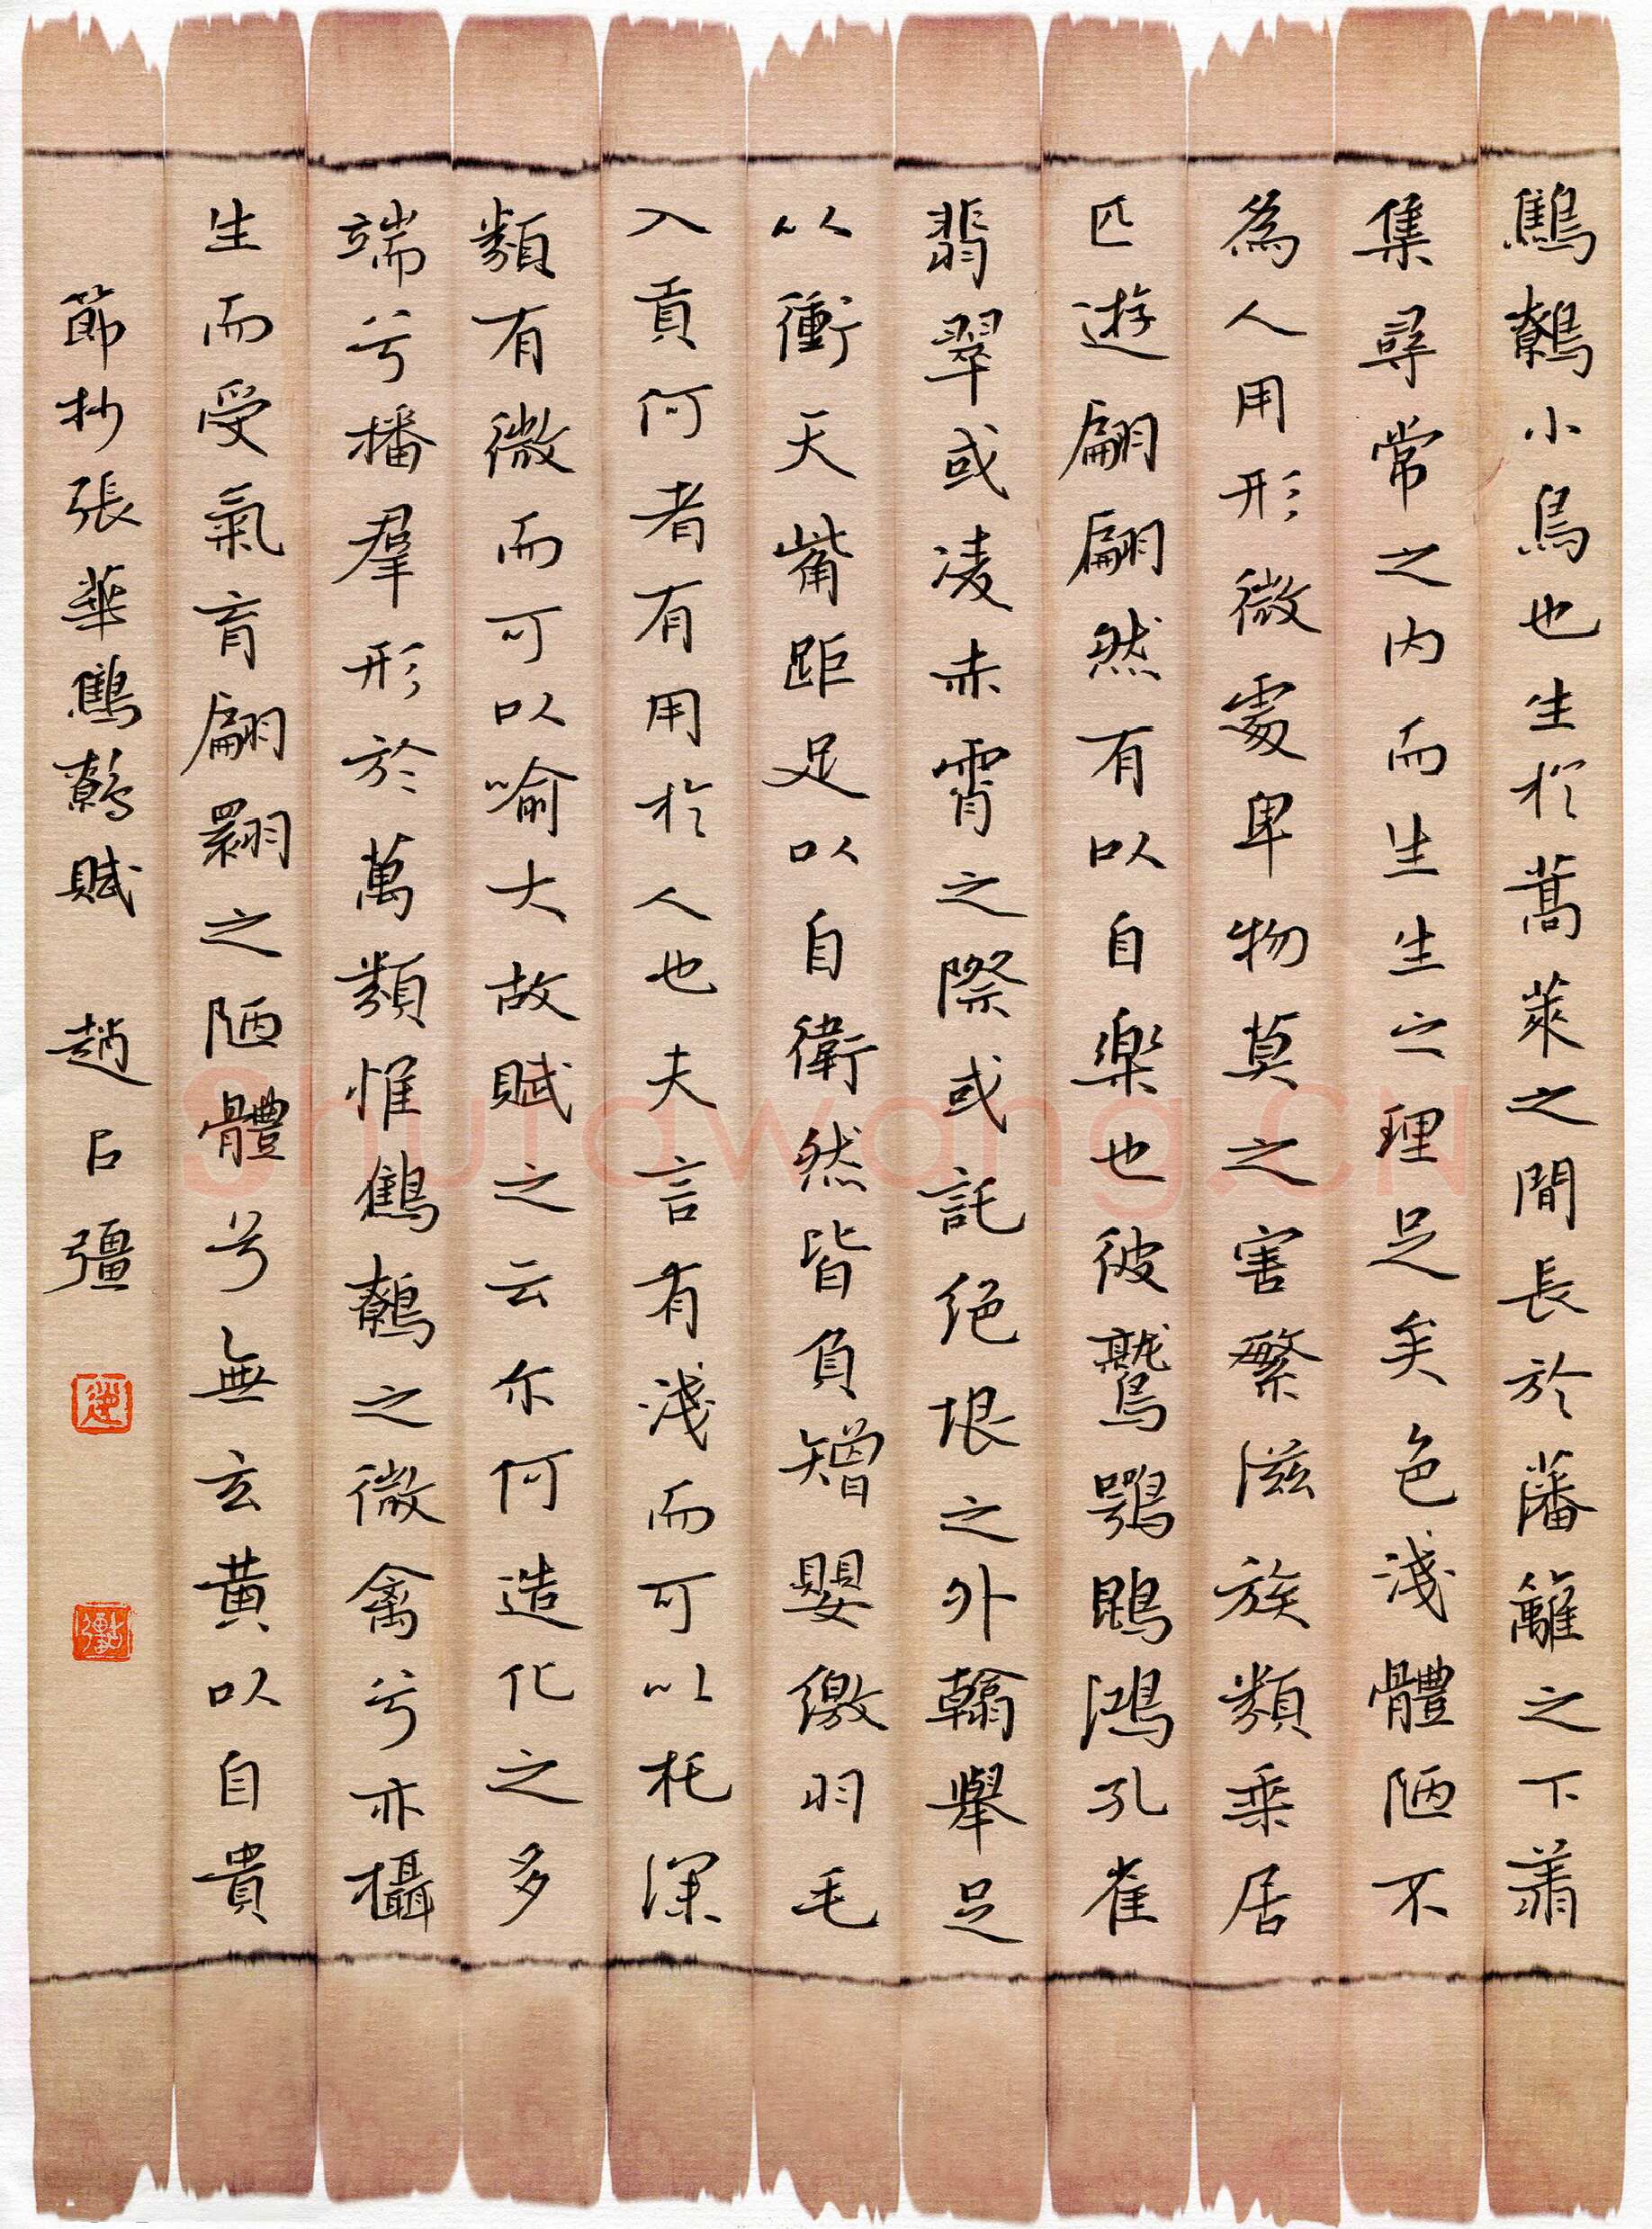 鷦鷯小鳥也生於蒿萊之間長於藩籬之下翔
集尋常之內而生生之理足矣色淺體陋不
為人用形微處卑物莫之害繁滋族類乘居
匹遊翩翩然有以自樂也彼鷲鶚鵾鴻孔雀
翡翠或凌赤霄之際或託絕垠之外翰舉足
以衝天觜距足以自衛然皆負矰嬰繳羽毛
入貢何者有用於人也夫言有淺而可以托深
類有微而可以喻大故賦之云尒何造化之多
端兮播羣形於萬類惟鷦鷯之微禽兮亦攝
生而受氣育翩翾之陋體兮無玄黃以自貴
節抄張華鷦鷯賦 趙 彊
Shufawang.CN